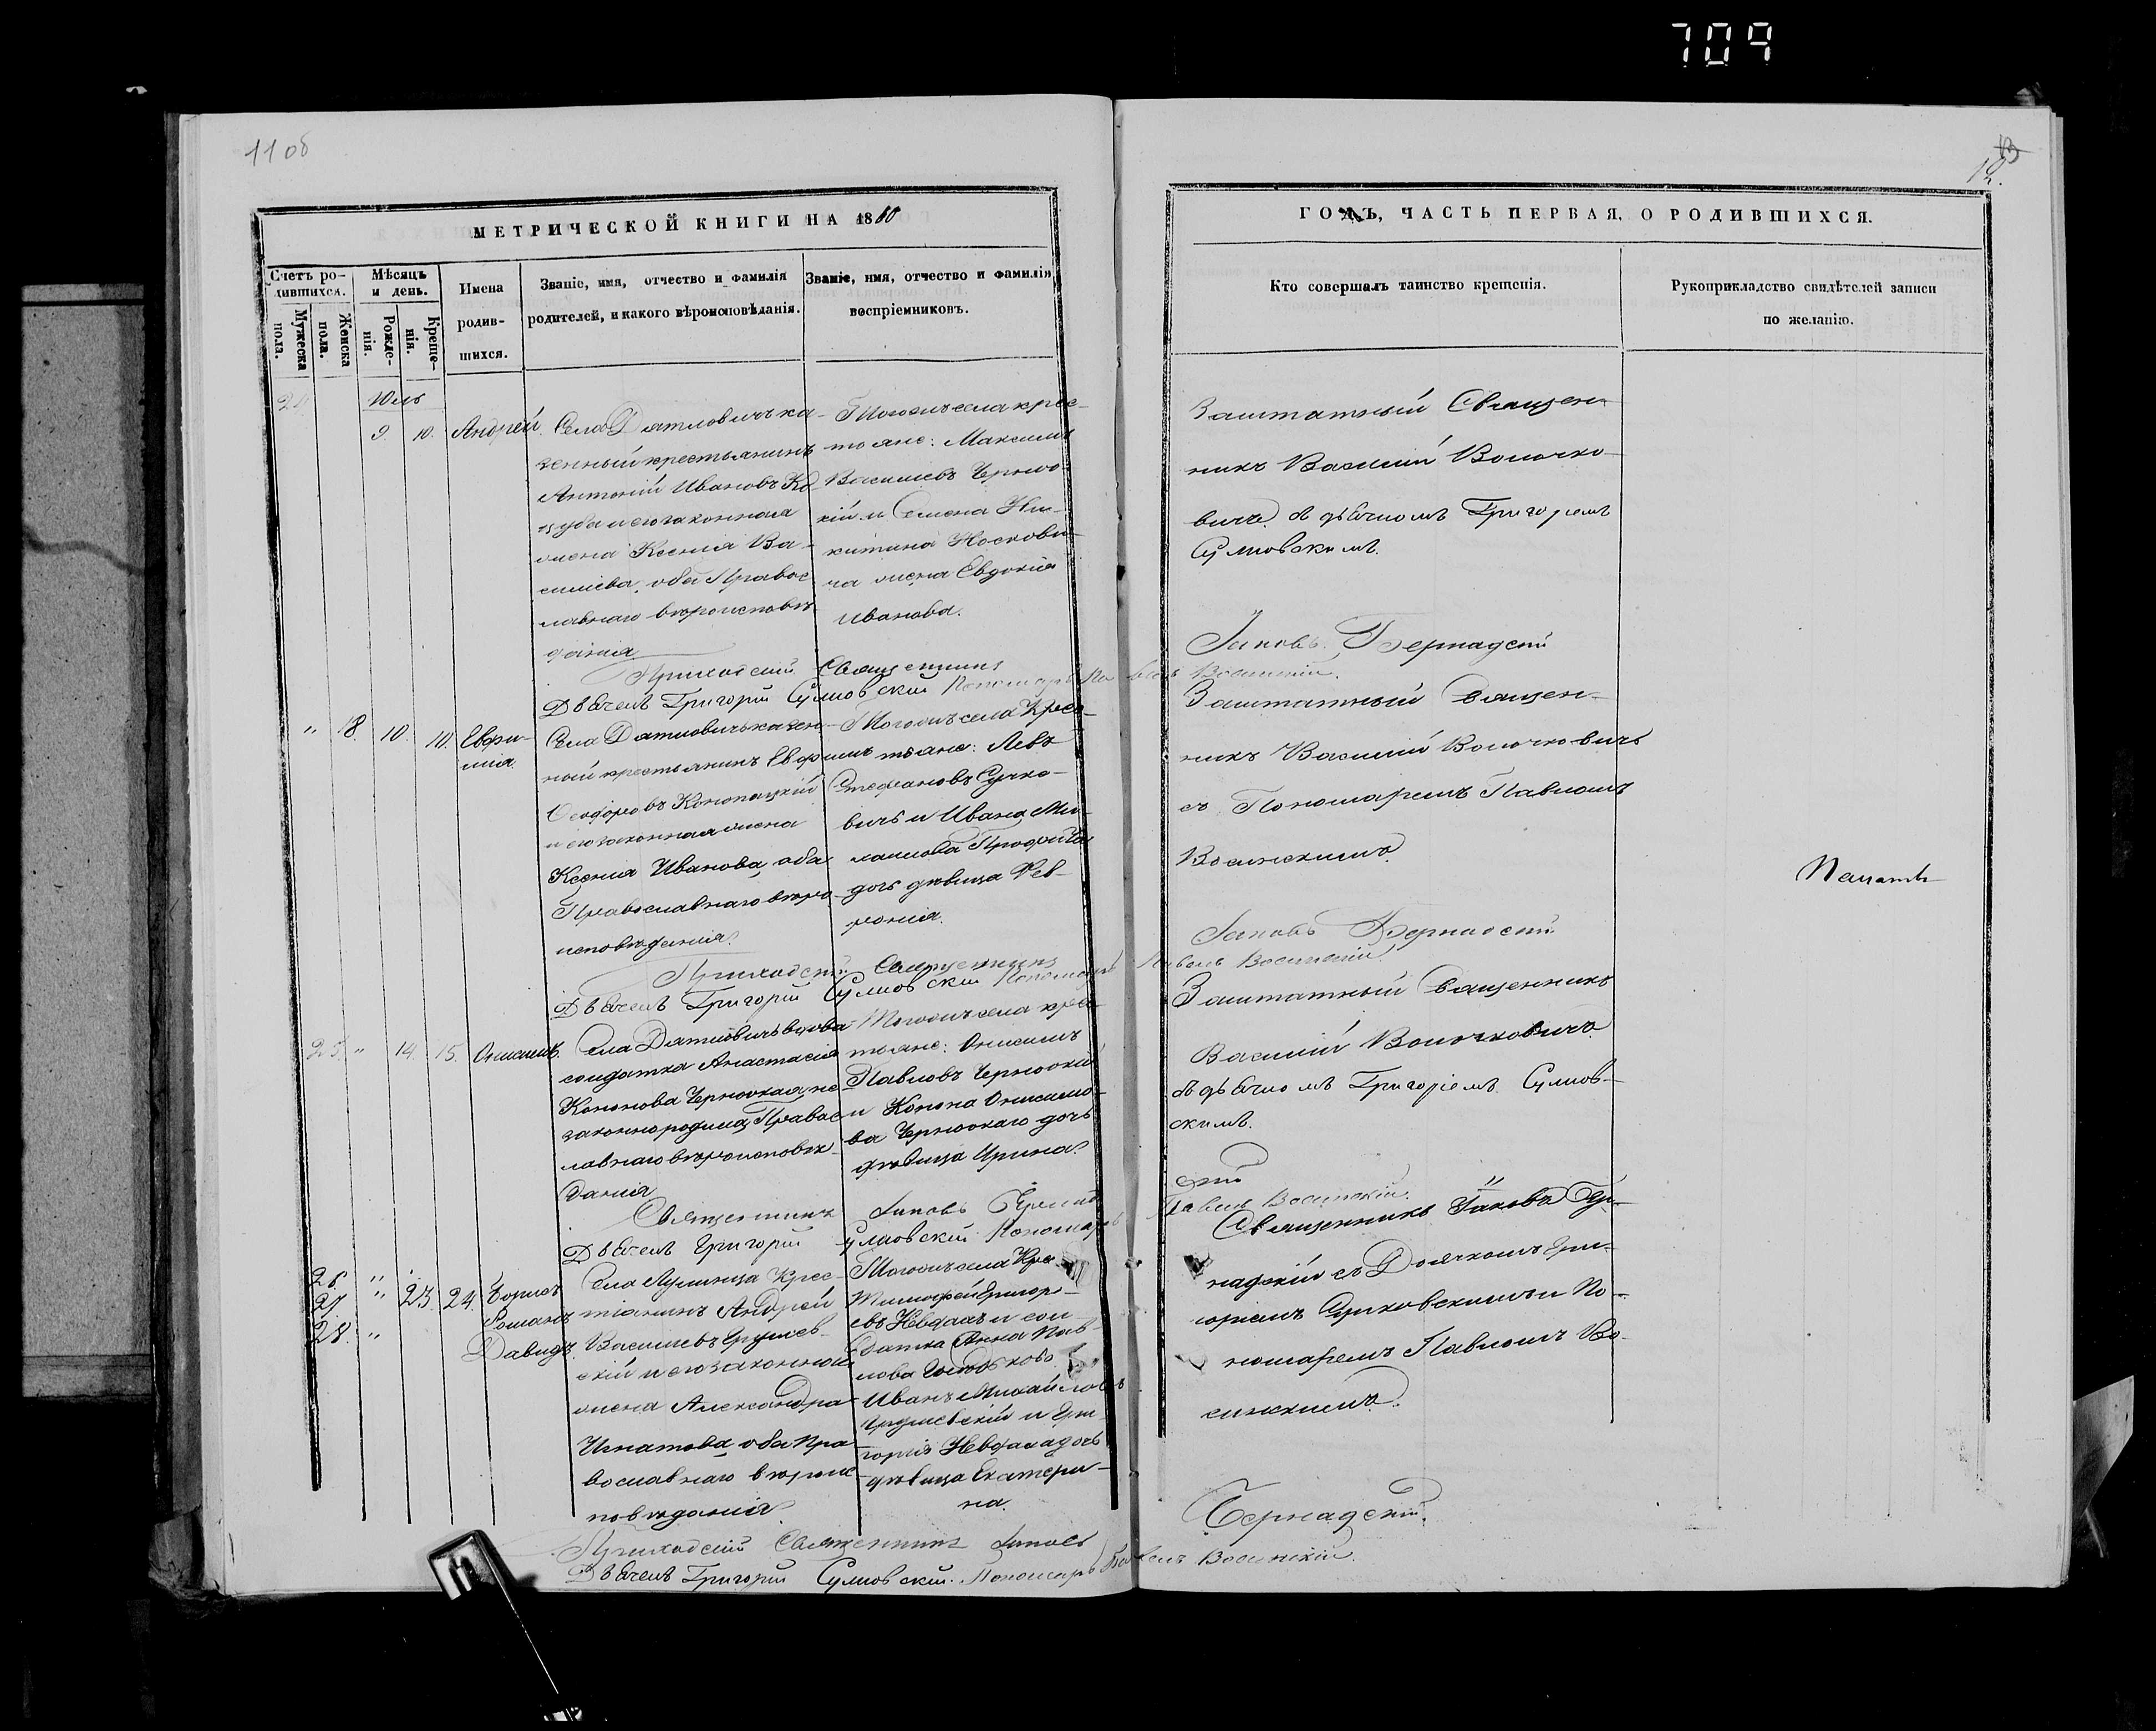 709
11 об
12.
МЕТРИЧЕСКОЙ КНИГИ НА 1860
Счетъ ро-
дившихся.
Мужеска
пола.
Женска
пола.
Мѣсяцъ
и день.
Рожде-
нія.
Креще-
нія.
Имена
родив-
шихся.
Званіе, имя, отчество и фамилія
родителей, и какого вѣроисповѣданія.
Званіе, имя, отчество и фамилія
воспріемниковъ.
ГОДЪ, ЧАСТЬ ПЕРВАЯ, О РОДИВШИХСЯ.
Кто совершалъ таинство крещенія.
Рукоприкладство свидѣтелей записи
по желанію.
Юль
9. 10. Андрей
Села Дятловичъ ка-
зенный крестьянинъ
Антоній Ивановъ
и его законная
жена Ксенія Ва-
силіева, оба Правос-
лавнаго вѣроисповѣ-
данія
Тогожъ села крес-
тьяне: Максимъ
Василіевъ
и Семена Ни-
китина Носкови-
ча жена Евдокія
Иванова.
Заштатный Священ-
никъ Василій Волочко-
вичъ съ дьячкомъ Григоріемъ
Сулковскимъ.
Приходскій Священникъ Іаковъ Бернадскій
Дьячекъ Григорій Сулковскій Пономарь Павелъ
" 18. 10. 10. Евфи-
мія.
Села Дятловичъ казен-
ный крестьянинъ Евфимъ
Ѳеодоровъ Конопацкій
и его законная жена
Ксенія Иванова, оба
Православнаго вѣро-
исповѣданія.
Тогожъ села Крес-
тьяне: Левъ
Стефановъ Сучко-
вичъ и Ивана Ми-
хаилова
дочь дѣвица Фев-
ронія.
Заштатный Священ-
никъ Василій Волочковичъ
съ Пономаремъ Павломъ
Приходскій Священникъ Іаковъ Бернадскій
Дьячекъ Григорій Сулковскій Пономарь Павелъ
25. " 14. 15. Онисимъ.
Села Дятловичъ вдова
солдатка Анастасія
Кононова Черноокая не-
законнородила, Правос-
лавнаго вѣроисповѣ-
данія
Тогожъ села крес-
тьяне: Онисимъ
Павловъ Черноокій
и Конона Онисимо-
ва Черноокаго дочь
дѣвица Ирина.
Заштатный Священникъ
Василій Волочковичъ
съ дьячкомъ Григоріемъ Сулков-
скимъ.
Священникъ Іаковъ
Дьячекъ Григорій Сулковскій Пономарь Павелъ
26 " 23. 24. Борисъ
27 " Романъ
28. " Давидъ.
Села Крес-
тіанинъ Андрей
Василіевъ
и его законная
жена Александра
Игнатова, оба Пра-
вославнаго вѣроис-
повѣданія
Тогожъ села Кре
Тимофей Григорі-
евъ и сол-
датка Анна Пав-
лова
Иванъ Михайловъ
и Гри-
горія дочь
дѣвица Екатери-
на.
Священникъ Іаковъ Бер-
надскій съ Дьячкомъ Гри-
горіемъ Сулковскимъ и По-
номаремъ Павломъ
Приходскій Священникъ Іаковъ Бернадскій.
Дьячекъ Григорій Сулковскій. Пономарь Павелъ